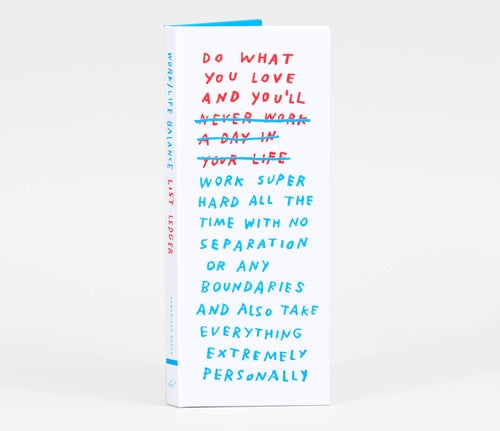 DO WHAT
YOU LOVE
AND YOU'LL
NEVER WORK
A DAY IN
YOUR LIFE
WORK SUPER
HARD ALL THE
TIME WITH NO
SEPARATION
OR ANY
BOUNDARIES
AND ALSO TAKE
EVERYTHING
EXTREMELY
PERSONALLY
WORK/LIFE BALANCE LIST LEDGER